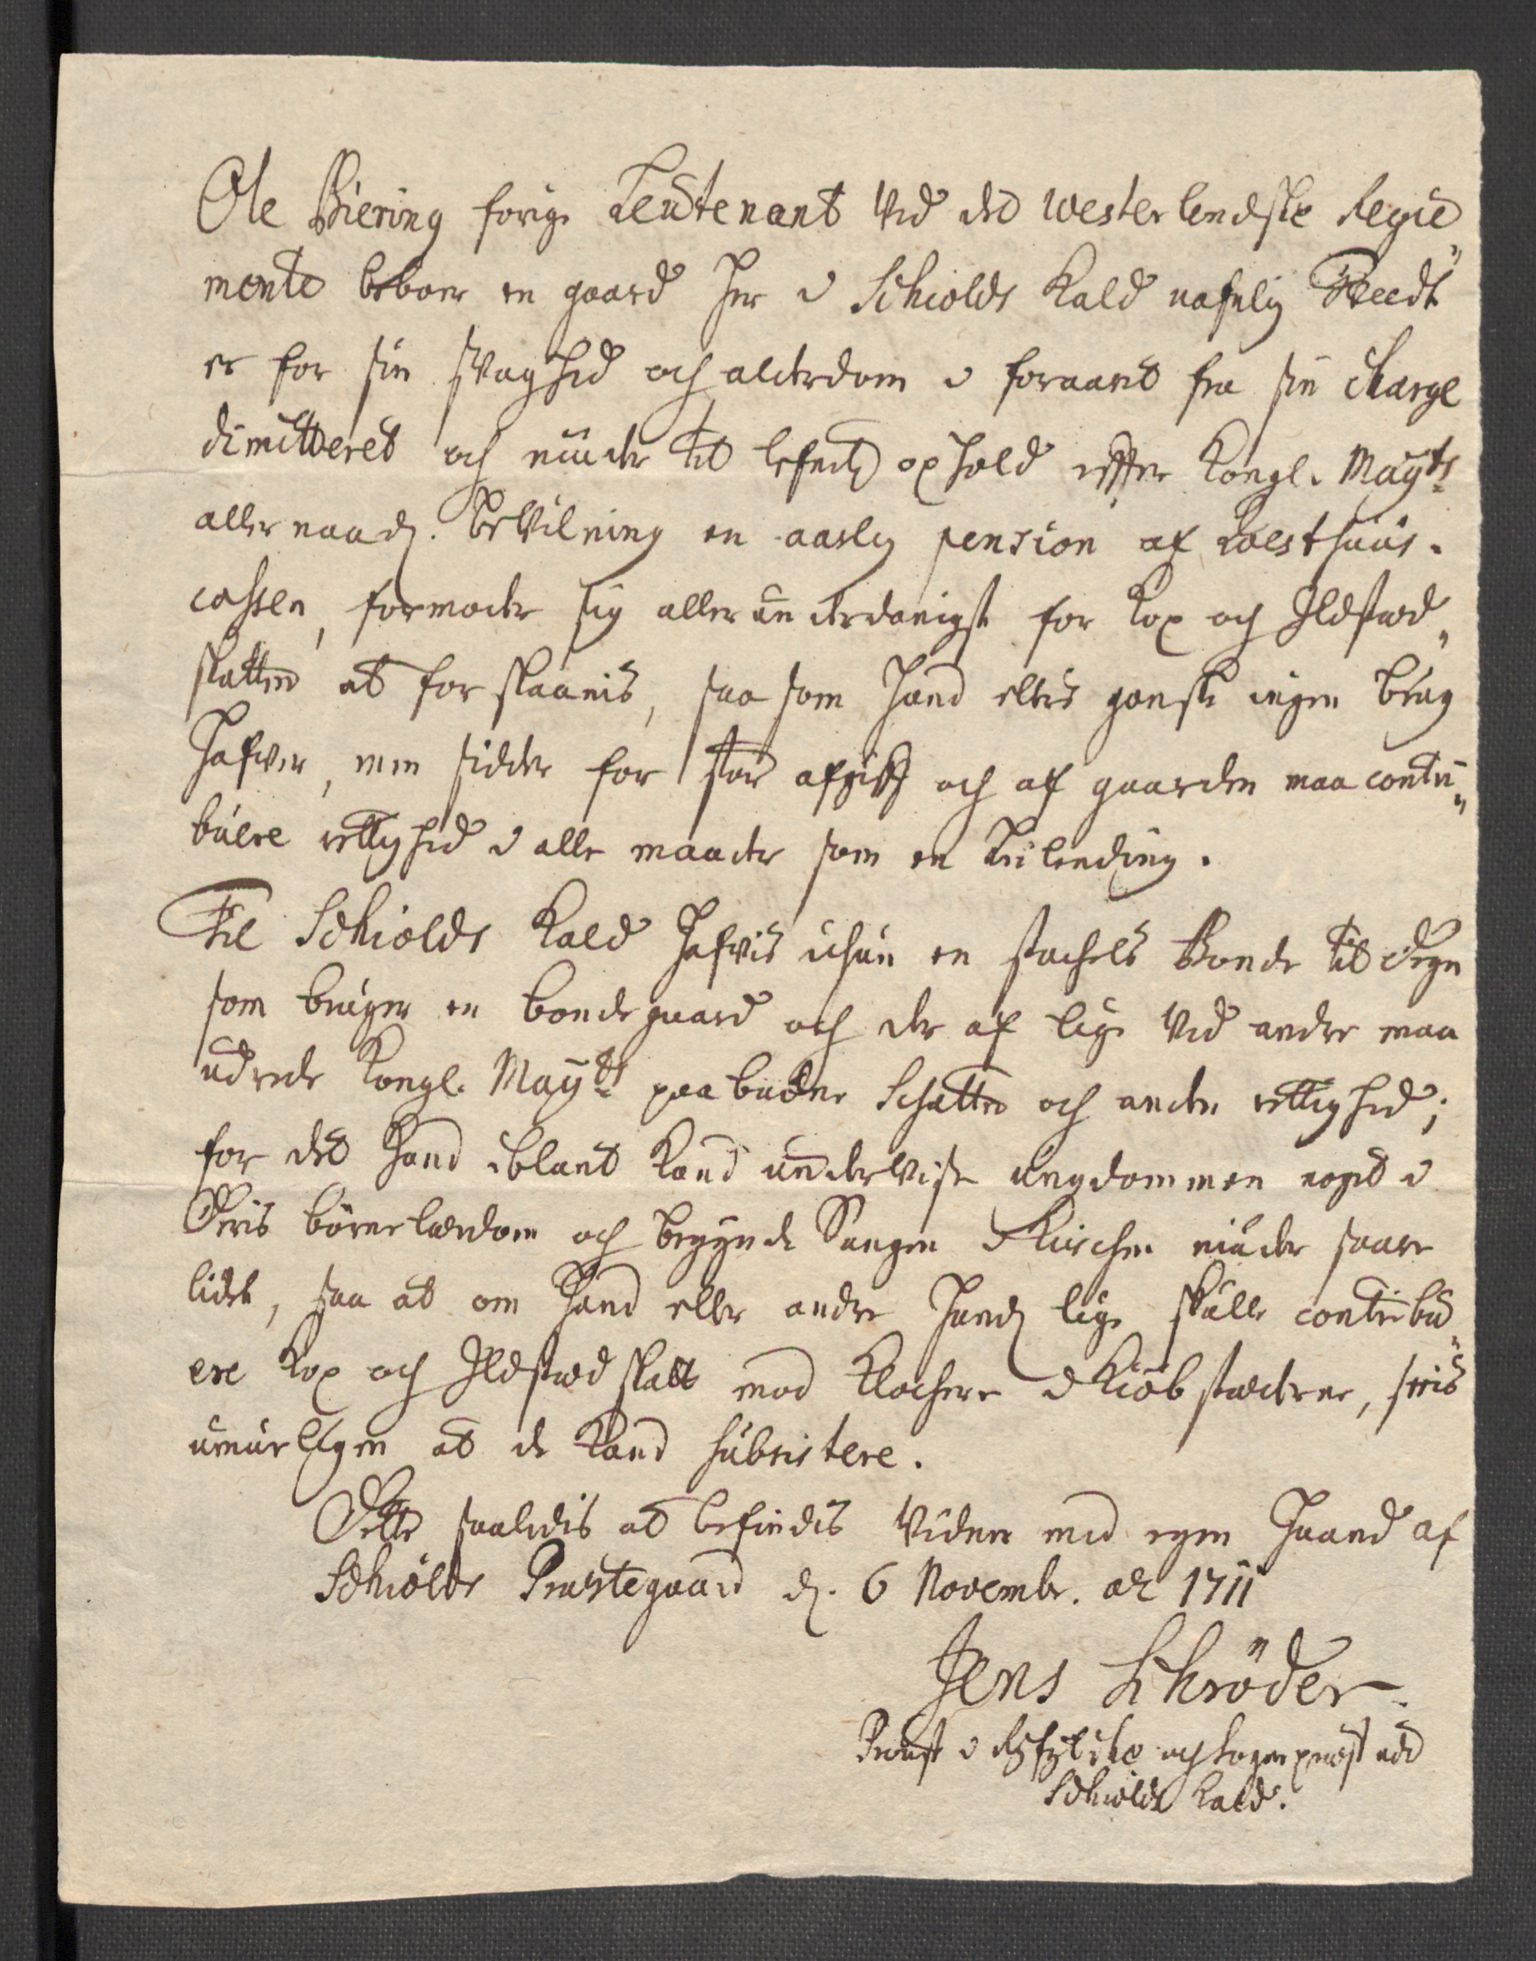 Ole Biering forige Leutenant Ved det westerlendske Regie„
mente beboer en gaard her i Schiolds Kald nafnlig
er for sin svaghed och alderdom i foraaret fra sin charge
dimitteret och niuder til lefnetz ophold effter Kongl. Mayts
allernaad. beVilning en aarlig pension af Qvesthuus-
cassen, formoder sig allerunderdanigst for Kop och Ildsted„
skatten at forskaanis, saa som hand ellers gansche ingen brug
hafver, men sidder for stor afgifft och af gaarden maa contri„
buere rettighed i alle maader som en Leilending.
Til Schiolds Kald hafvis ichun en stachels Bonde til degn
som bruger en bondegaard och der af lige Ved andre maa
udrede Kongl. Mayts paabudne Schatter och anden rettighed;
for det hand iblant Kand underVise ungdommen noget i
Deris børnelærdom och begynde Sangen i Kirchen niuder saare
lidet, saa at om hand eller andre hands lige skulle contribu„
ere Kop och Ildstedskatt mod Klochere i Kiøbstæderne, siunis
umueligen at de Kand subsistere.
Dette saaledis at befindis Vidner med egen Haand af
Schiolds Præstegaard d. 6 Novembr. ao 1711
Jens Schrøder
Proust i Ryfylcke och sogneprest udi
Schiolds Kald.